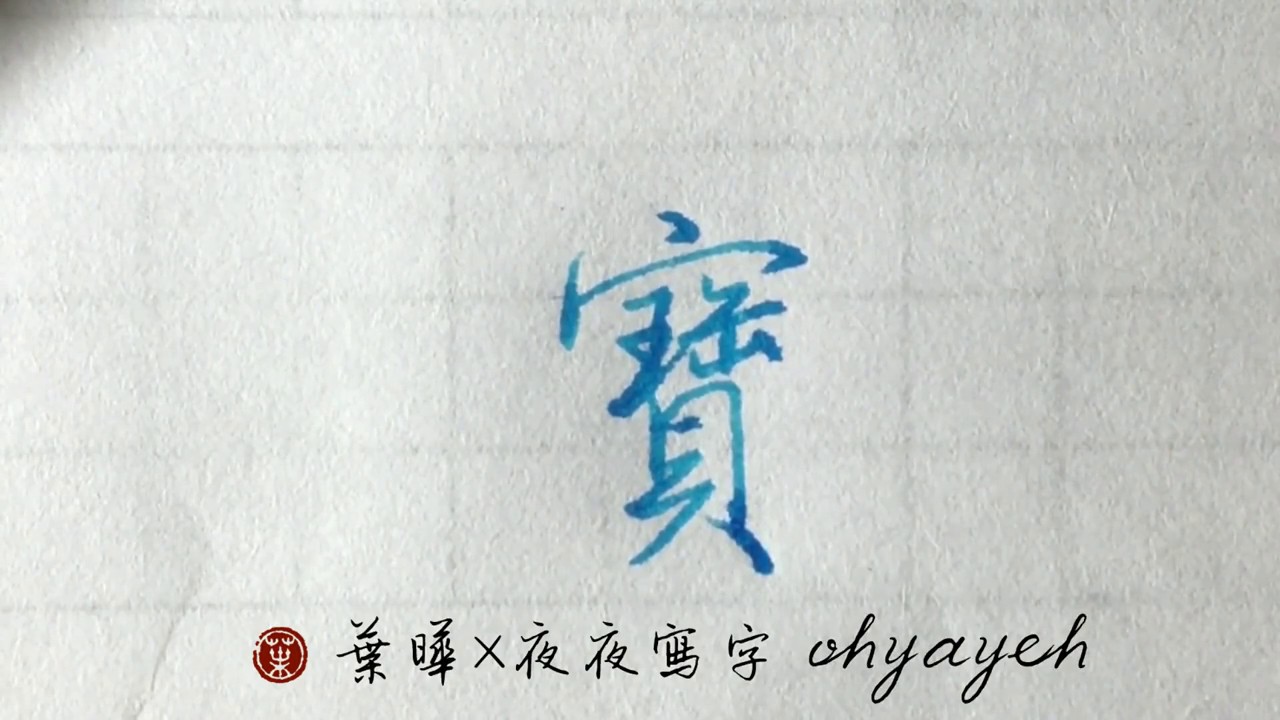 寶
葉 葉曄×夜夜寫字 ohyayeh